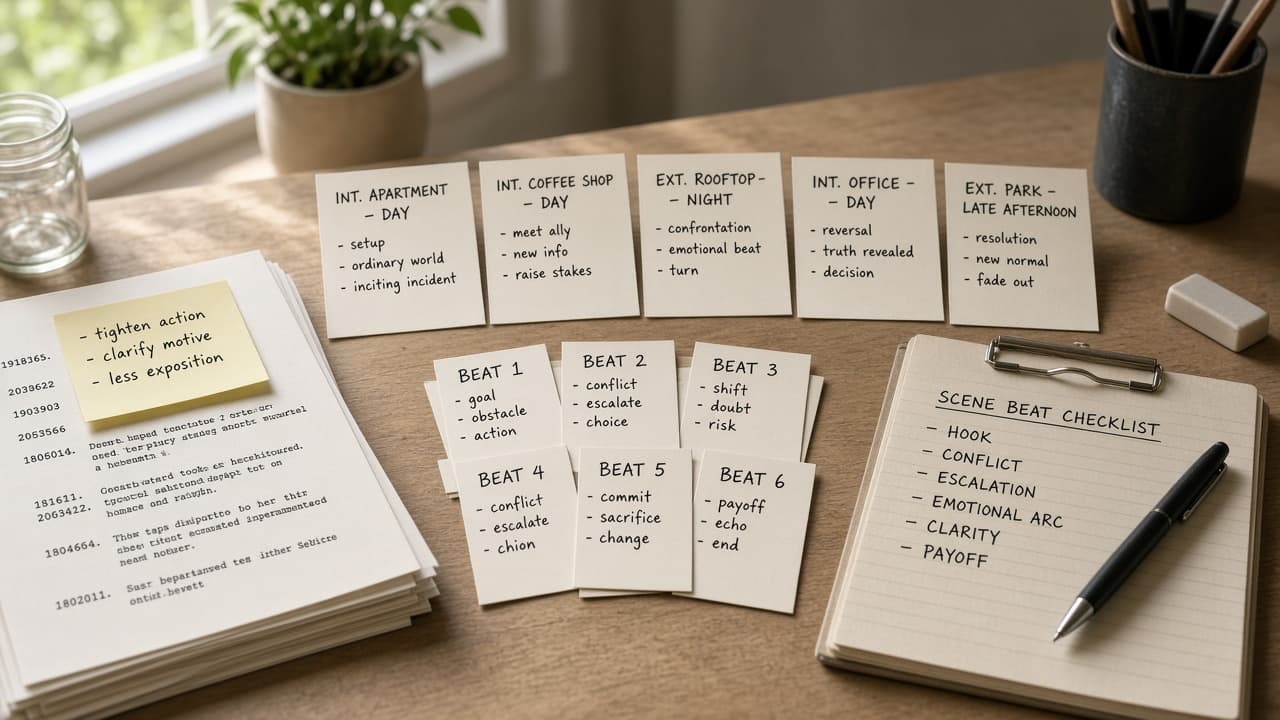 INT. APARTMENT
– DAY
- setup
- ordinary world
- inciting incident
INT. COFFEE SHOP
– DAY
- meet ally
- new info
- raise stakes
EXT. ROOFTOP –
– NIGHT
- confrontation
- emotional beat
- turn
INT. OFFICE –
– DAY
- reversal
- truth revealed
- decision
EXT. PARK –
LATE AFTERNOON
- resolution
- new normal
- fade out
- tighten action
- clarify motive
- less exposition
1918365.
2033622
1903903
2053566
1806014.
a
181611.
2063422.
and
1804664.
1802011.
BEAT 1
- goal
- obstacle
- action
BEAT 2
- conflict
- escalate
- choice
BEAT 3
- shift
- doubt
- risk
BEAT 4
- conflict
- escalate
- chion
BEAT 5
- commit
- sacrifice
- change
BEAT 6
- payoff
- echo
- end
SCENE BEAT CHECKLIST
– HOOK
– CONFLICT
– ESCALATION
– EMOTIONAL ARC
– CLARITY
– PAYOFF